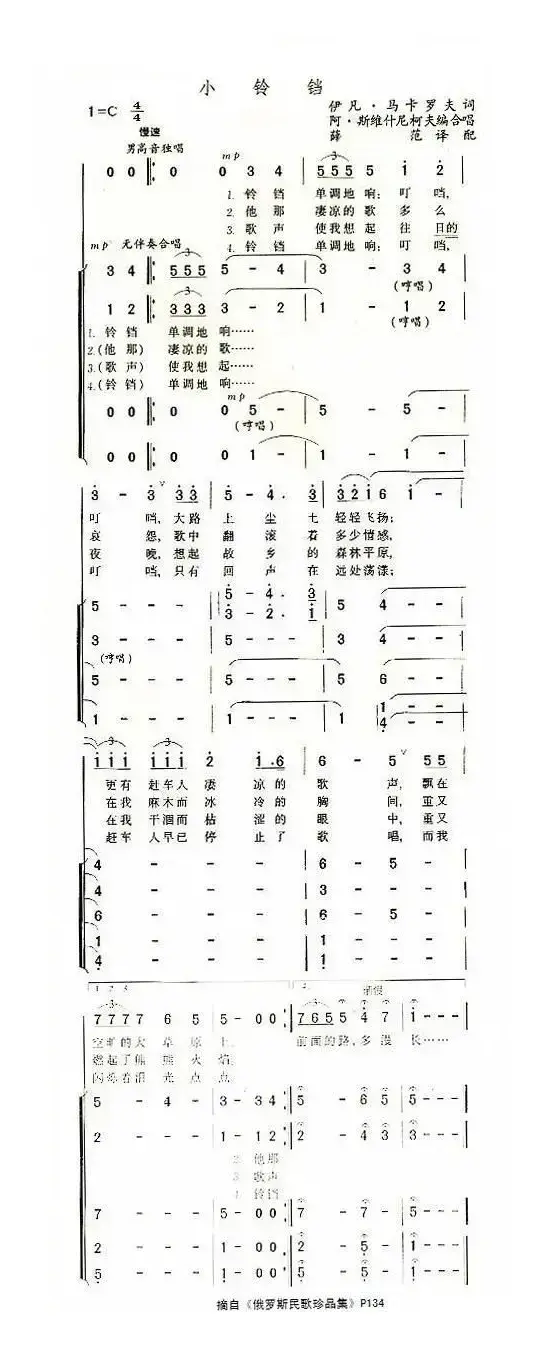 小 铃 铛
1=C 4/4
伊 凡 · 马 卡 罗 夫 词
阿 · 斯 维 什 尼 柯 夫 编 合 唱
薛 范 译 配
慢速
男高音独唱
mp
0 0 0 0 3 4 5 5 5 5 1 2
1. 铃 铛 单调地 响: 叮 当,
2. 他 那 凄凉的 歌 多 么
3. 歌 声 使我想 起 往 日的
4. 铃 铛 单调地 响: 叮 当,
mp 无伴奏合唱
3 4 5 5 5 5 - 4 3 - 3 4
(哼唱)
1 2 3 3 3 3 - 2 1 - 1 2
(哼唱)
1. 铃 铛 单调地 响……
2.(他 那) 凄凉的 歌……
3.(歌 声) 使我想 起……
4.(铃 铛) 单调地 响……
mp
0 0 0 0 5 - 5 - 5 -
(哼唱)
0 0 0 0 1 - 1 - 1 -
3 - 3 3 3 5 - 4 . 3 3 2 1 6 1 -
叮 当, 大路 上 尘 土 轻轻飞扬;
哀 怨, 歌中 翻 滚 着 多少情感,
夜 晚, 想起 故 乡 的 森林平原,
叮 当, 只有 回 声 在 远处荡漾;
5 - - - 5 - 4 . 3 5 4 - -
3 - 2 . 1
3 - - - 5 - - - 3 4 - -
(哼唱)
5 - - - 5 - - - 5 6 - -
1 - - - 1 - - - 1 1 - -
4 - -
1 1 1 1 1 2 1 . 6 6 - 5 5 5
更有 赶车人 凄 凉的 歌 声, 飘在
在我 麻木而 冰 冷的 胸 间, 重又
在我 干涸而 枯 涩的 眼 中, 重又
赶车 人早已 停 止了 歌 唱, 而我
4 - - - 6 - 5 -
4 - - - 3 - - -
6 - - - 6 - 5 -
1 - - - 1 - - -
4 - - - 1 - - -
1. 2. 3.
4.
7 7 7 7 6 5 5 - 0 0 7 6 5 5 5 4 7 1 - - -
空旷的大 草 原 上。 前面的路, 多 漫 长……
燃起了熊 熊 火 焰。
闪烁着泪 光 点 点
5 - 4 - 3 - 3 4 5 - 6 5 5 - - -
2 - - - 1 - 1 2 2 - 4 3 3 - - -
2. 他 那
3. 歌 声
4. 铃 铛
7 - - - 5 - 0 0 7 - 7 - 5 - - -
2 - - - 1 - 0 0 2 - 5 - 1 - - -
5 - - - 1 - 0 0 5 - 5 - 1 - - -
摘自《俄罗斯民歌珍品集》P134